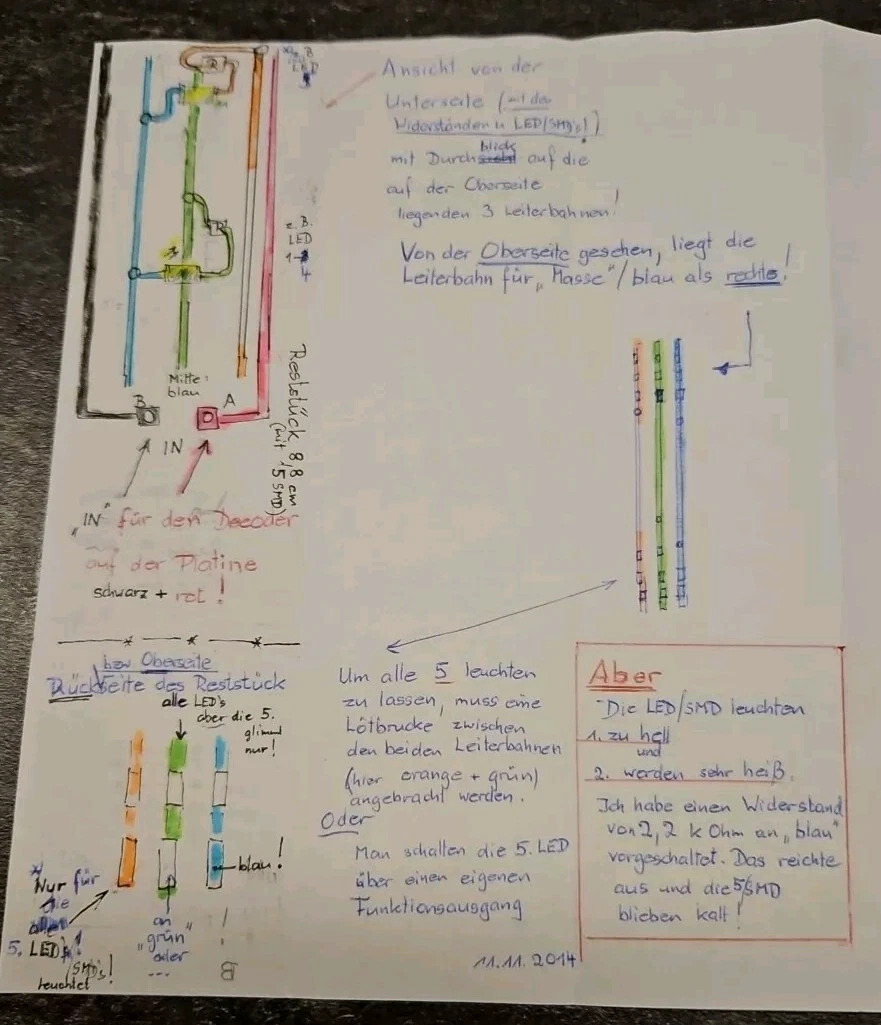 z. B.
LED
Ansicht von der
Unterseite (mit den
Widerständen u LED/SMD's!)
mit Durchblick auf die
auf der Oberseite
liegenden 3 Leiterbahnen!
Von der Oberseite gesehen, liegt die
Leiterbahn für „Masse"/blau als rechte!
R
R
z. B.
LED
1-
4
Mitte:
blau
B
A
IN
Reststück 8,8 cm
(mit 5 SMD)
„IN" für den Decoder
auf der Platine
schwarz + rot!
bzw Oberseite
Rückseite des Reststück
alle LED's
aber die 5.
glimmt
nur!
blau!
Nur für
die
5. LED
(SMD's!
leuchtet
an
„grün"
oder
...
B
Um alle 5 leuchten
zu lassen, muss eine
Lötbrücke zwischen
den beiden Leiterbahnen
(hier orange + grün)
angebracht werden.
Oder
Man schalten die 5. LED
über einen eigenen
Funktionsausgang
11.11.2014
Aber
Die LED/SMD leuchten
1. zu hell
und
2. werden sehr heiß.
Ich habe einen Widerstand
von 2,2 k Ohm an „blau"
vorgeschaltet. Das reichte
aus und die 5/SMD
blieben kalt!